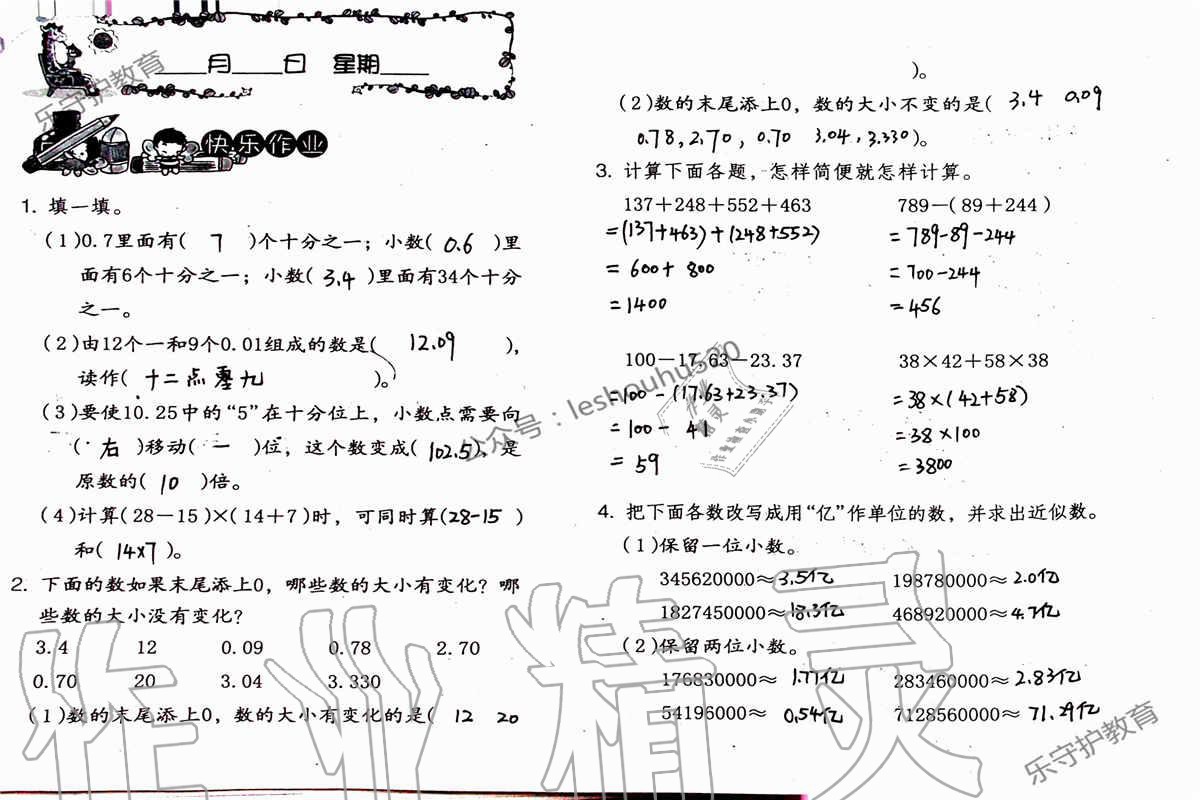 ____月____日 星期____
快乐作业
1. 填一填。
(1)0.7里面有( 7 )个十分之一；小数( 0.6 )里
面有6个十分之一；小数( 3.4 )里面有34个十分
之一。
(2)由12个一和9个0.01组成的数是( 12.09 )，
读作( 十二点零九 )。
(3)要使10.25中的“5”在十分位上，小数点需要向
( 右 )移动( 一 )位，这个数变成(102.5)，是
原数的( 10 )倍。
(4)计算(28-15)×(14+7)时，可同时算(28-15 )
和( 14×7 )。
2. 下面的数如果末尾添上0，哪些数的大小有变化？哪
些数的大小没有变化？
3.4 12 0.09 0.78 2.70
0.70 20 3.04 3.330
(1)数的末尾添上0，数的大小有变化的是( 12 20
)。
(2)数的末尾添上0，数的大小不变的是( 3.4 0.09
0.78, 2.70, 0.70 3.04, 3.330)。
3. 计算下面各题，怎样简便就怎样计算。
137+248+552+463 789-(89+244)
=(137+463)+(248+552) =789-89-244
=600+800 =700-244
=1400 =456
100-17.63-23.37 38×42+58×38
=100-(17.63+23.37) =38×(42+58)
=100-41 =38×100
=59 =3800
4. 把下面各数改写成用“亿”作单位的数，并求出近似数。
(1)保留一位小数。
345620000≈3.5亿 198780000≈2.0亿
1827450000≈18.3亿 468920000≈4.7亿
(2)保留两位小数。
176830000≈1.77亿 283460000≈2.83亿
54196000≈0.54亿 7128560000≈71.29亿
乐守护教育
公众号：leshouhu530
作业精灵
乐守护教育